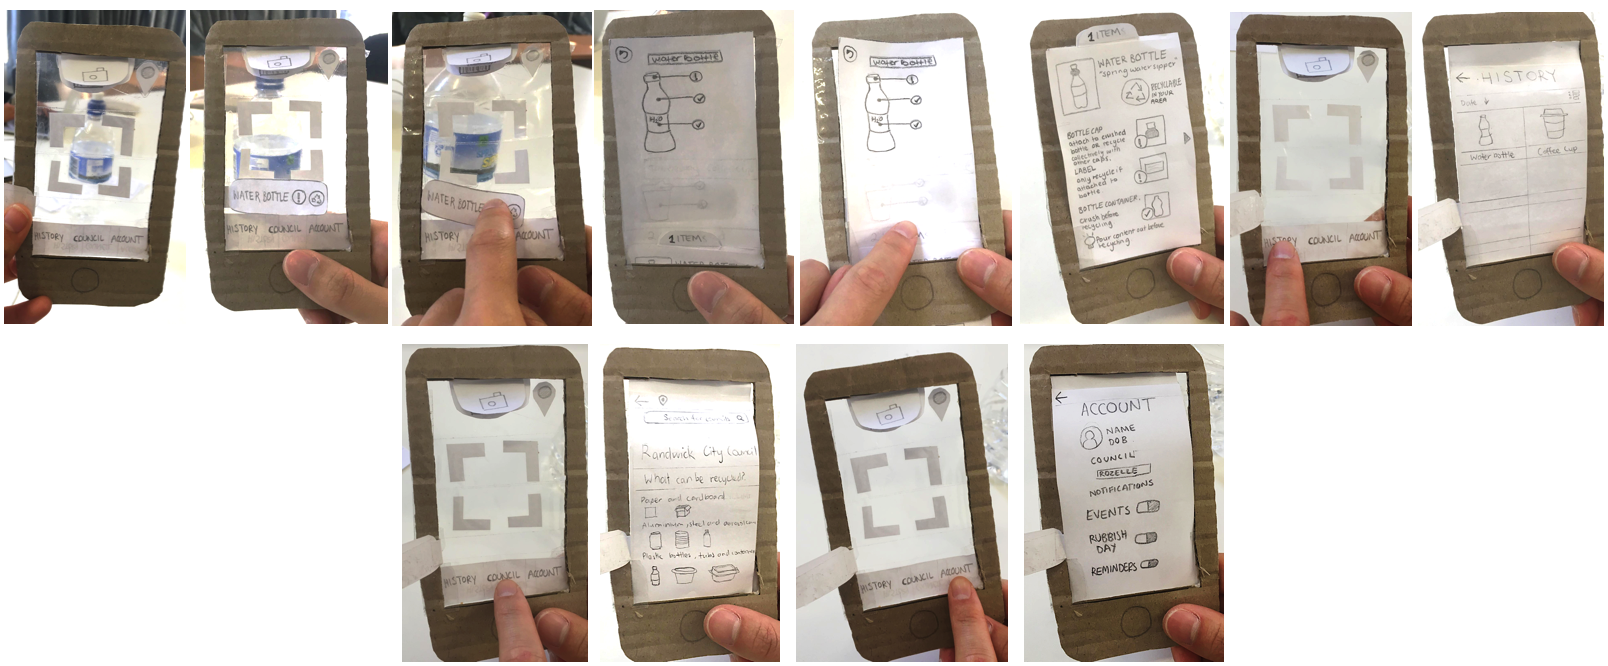 HISTORY COUNCIL ACCOUNT
WATER BOTTLE
HISTORY COUNCIL ACCOUNT
WATER BOTTLE
HISTORY COUNCIL ACCOUNT
water bottle
H2O
1 ITEM:
WATER BOTTLE
water bottle
H2O
1 ITEM:
WATER BOTTLE
"Spring water supper"
RECYCLABLE
IN YOUR
AREA
BOTTLE CAP
attach to crushed
bottle or recycle
collectively with
other caps.
LABEL
only recycle if
attached to
bottle.
BOTTLE CONTAINER.
crush before
recycling
Pour content out before
recycling
HISTORY COUNCIL ACCOUNT
← HISTORY
Date ↓
Water bottle
Coffee Cup
HISTORY COUNCIL ACCOUNT
Search for
Randwick City Council
What can be recycled?
Paper and cardboard
Aluminium, steel and
Plastic bottles, tubs and containers
HISTORY COUNCIL ACCOUNT
←
ACCOUNT
NAME
DOB
COUNCIL
ROZELLE
NOTIFICATIONS
EVENTS
RUBBISH
DAY
REMINDERS